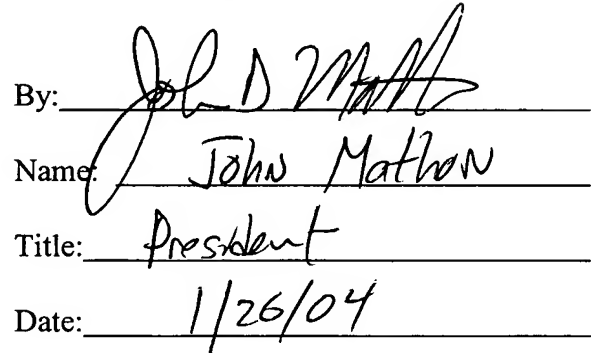 By: John D Math
Name: John Mathon
Title: President
Date: 1/26/04